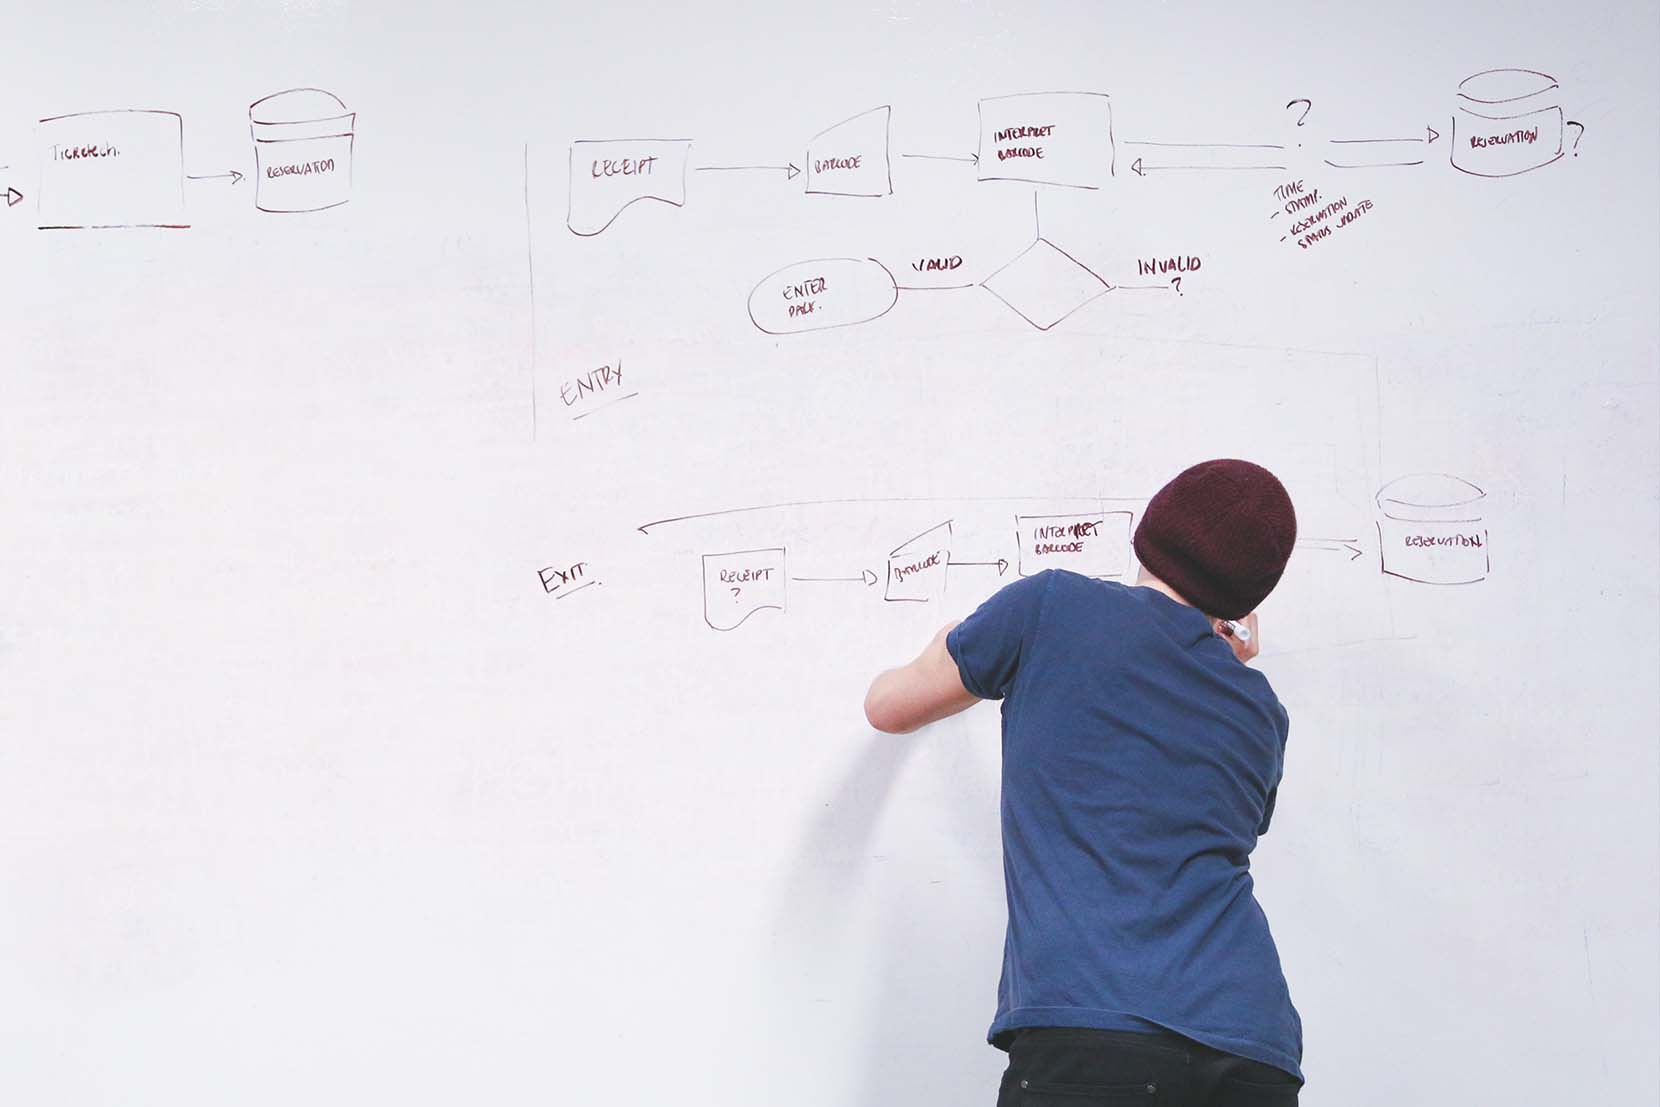 Ticketech.
RESERVATION
RECEIPT
BARCODE
INTERPRET
BARCODE
?
RESERVATION
?
TIME
- STAMP.
- RESERVATION
STATUS UPDATE
VALID
INVALID
?
ENTER
PARK.
ENTRY
EXIT.
RECEIPT
?
BARCODE
INTERPRET
BARCODE
RESERVATION